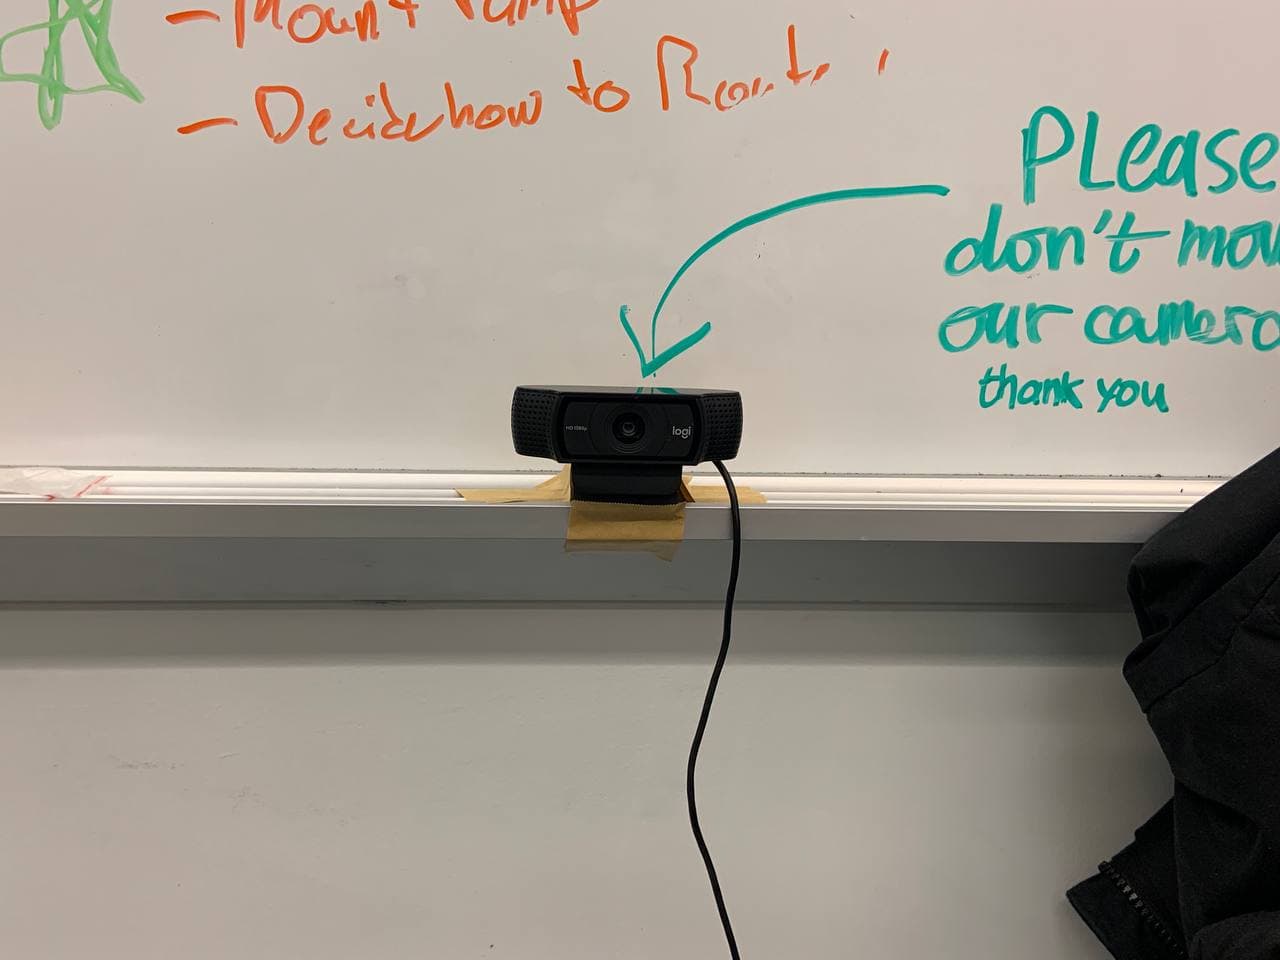 - Mount Pump
- Decide how to
PLease
don't mov
our camera
thank you
HD 1080p
logi